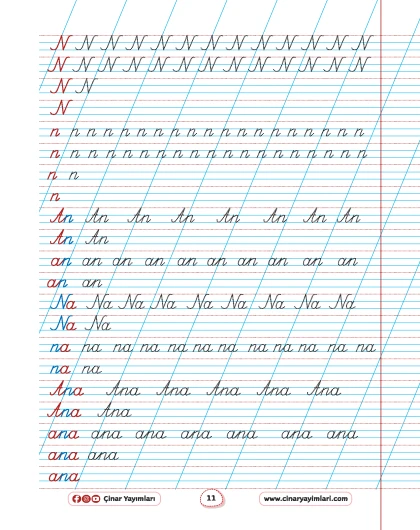 N N N N N N N N N N N N N
N N N N N N N N N N N N N
N N
N
n n n n n n n n n n n n n n n n n n n
n n n n n n n n n n n n n n n n n n n
n n
n
An An An An An An An An
An An
an an an an an an an an an an
an an
Na Na Na Na Na Na Na Na Na
Na Na
na na na na na na na na na na na na
na na
Ana Ana Ana Ana Ana Ana
Ana Ana
ana ana ana ana ana ana ana
ana ana
ana
Çınar Yayımları 11 www.cinaryayimlari.com